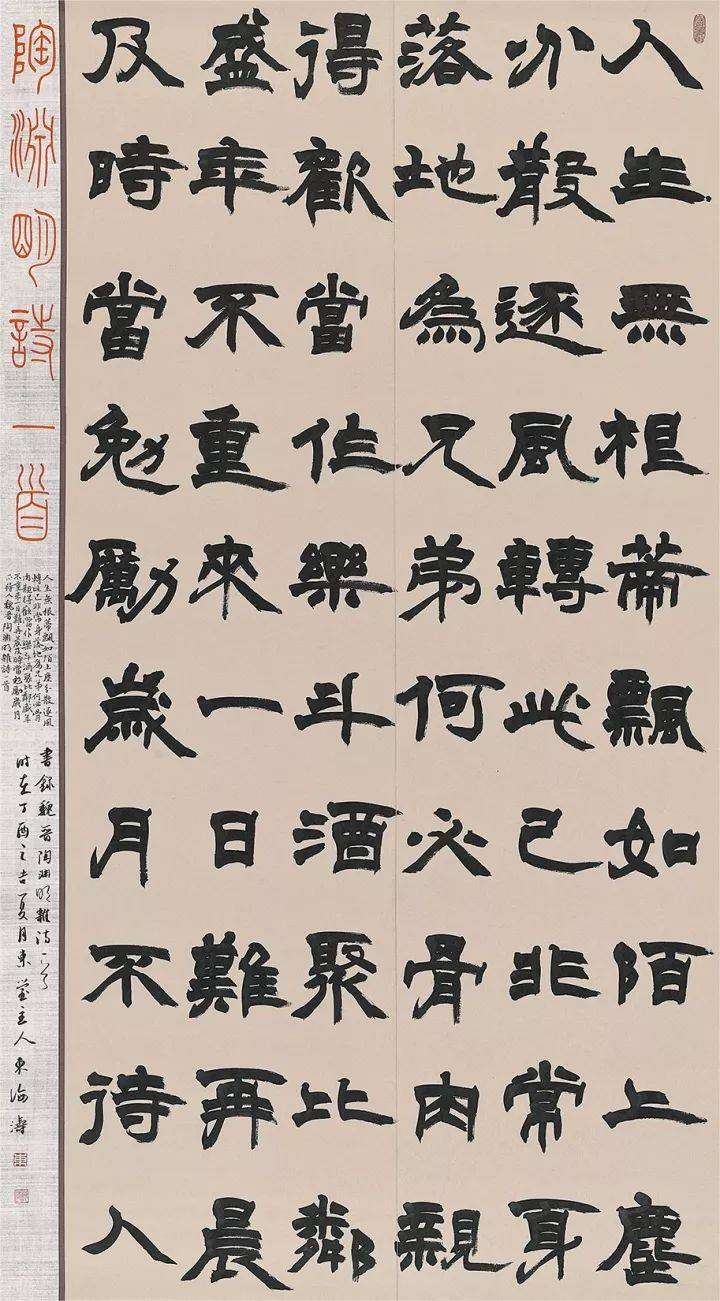 人生無根蒂飄如陌上塵
分散逐風轉此已非常身
落地爲兄弟何必骨肉親
得歡當作樂斗酒聚比鄰
盛年不重來一日難再晨
及時當勉勵歲月不待人
陶淵明詩一首
人生無根蒂飄如陌上塵分散逐風
轉此已非常身落地為兄弟何必骨
肉親得歡當作樂斗酒聚比鄰盛年
不重來一日難再晨及時當勉勵歲月
不待人魏晉陶淵明雜詩一首
書錄魏晉陶淵明雜詩一首
時在丁酉之吉夏月東主人東海濤